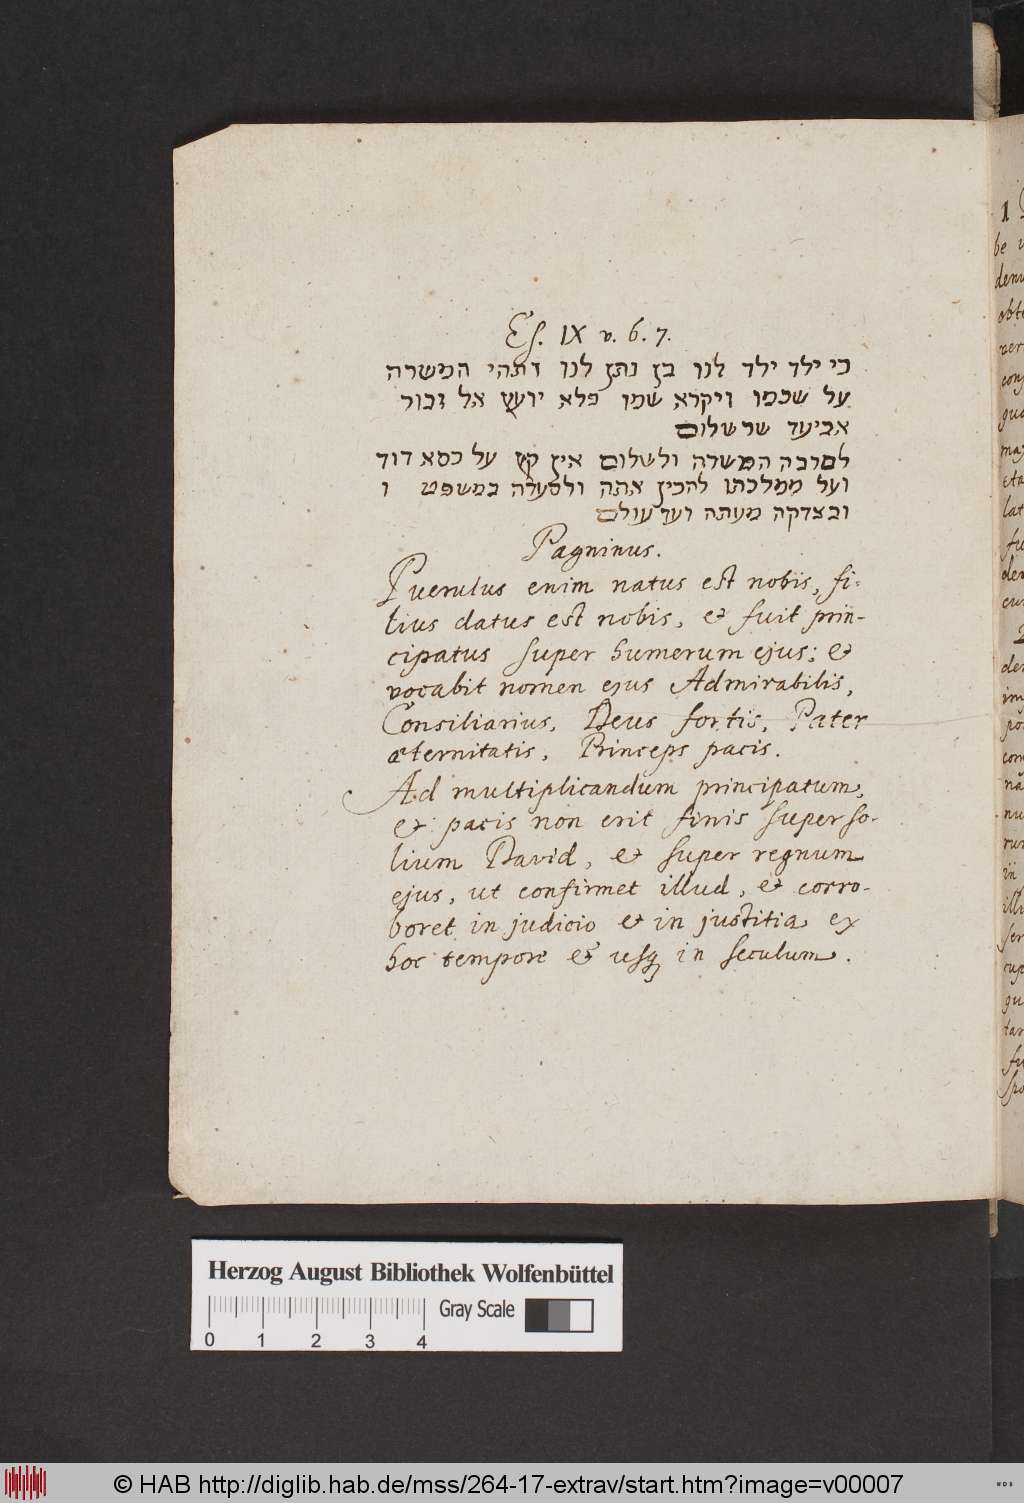 Es. IX v. 6. 7.
כי ילד ילד לנו בן נתן לנו ותהי המשרה
על שכמו ויקרא שמו פלא יועץ אל גבור
אביעד שר שלום
למרבה המשרה ולשלום אין קץ על כסא דוד
ועל ממלכתו להכין אתה ולסעדה במשפט ו
ובצדקה מעתה ועד עולם
Pagninus.
Puerulus enim natus est nobis, fi-
lius datus est nobis, et fuit prin-
cipatus super humerum ejus; et
vocabit nomen ejus Admirabilis,
Consiliarius, Deus fortis, Pater
æternitatis, Princeps pacis.
Ad multiplicandum principatum,
et pacis non erit finis super so-
lium David, et super regnum
ejus, ut confirmet illud, et corro-
boret in judicio et in justitia ex
hoc tempore et usq in seculum.
Herzog August Bibliothek Wolfenbüttel
Gray Scale
0 1 2 3 4
© HAB http://diglib.hab.de/mss/264-17-extrav/start.htm?image=v00007